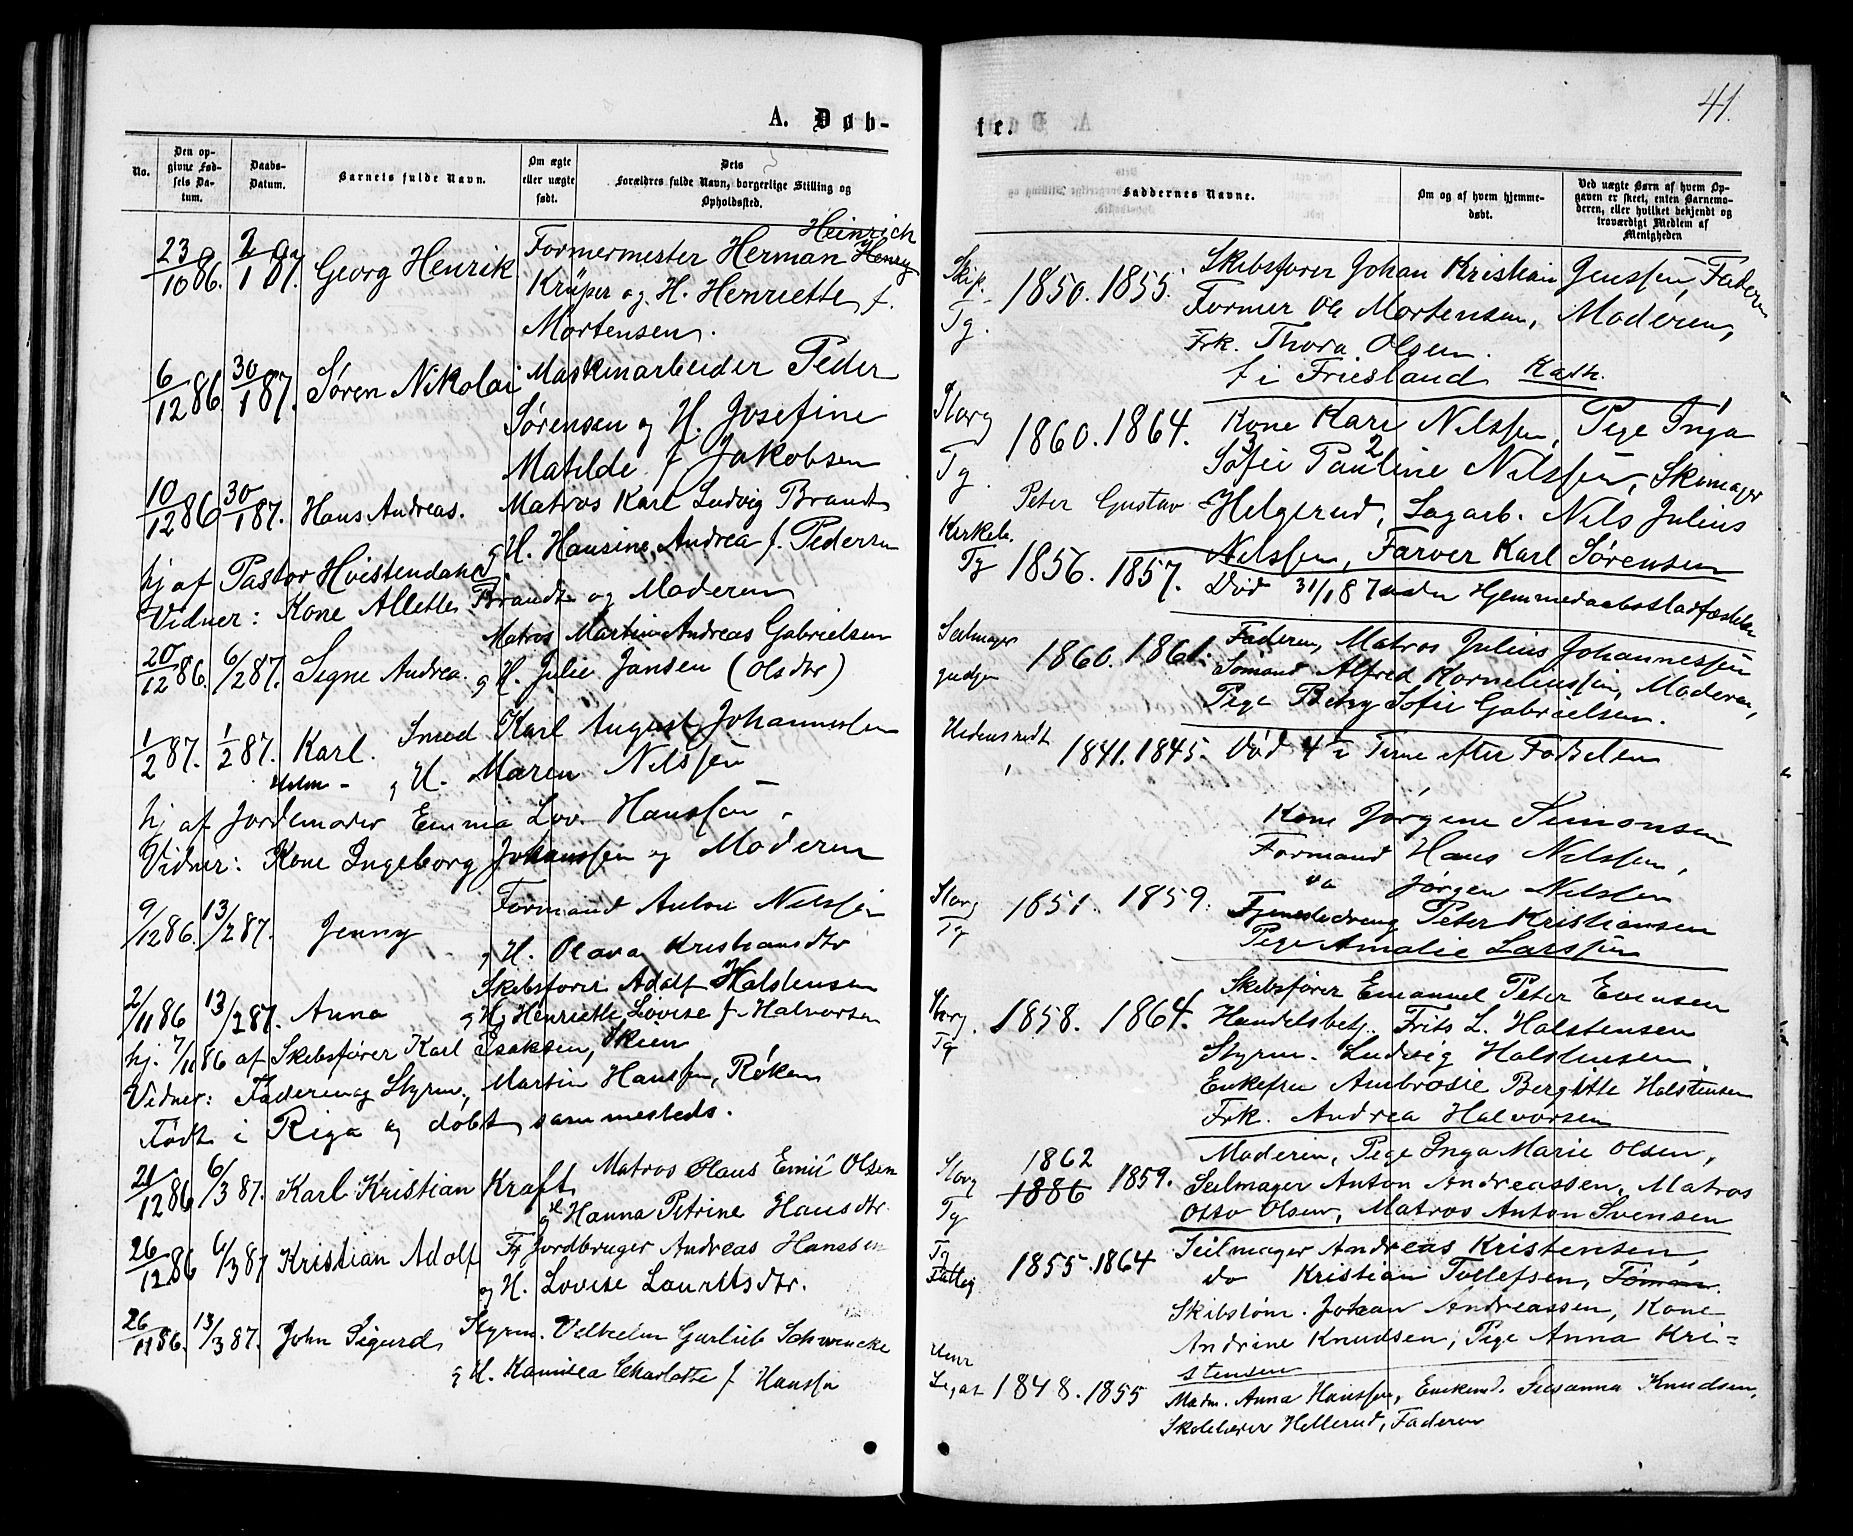 41.
A. Døb-
te.
No.
Den opgivne Fødsels Datum.
Daabs-Datum.
Barnets fulde Navn.
Om ægte eller uægte født.
Dets Forældres fulde Navn, borgerlige Stilling og Opholdssted.
Faddernes Navne.
Om og af hvem hjemmedøbt.
Ved uægte Børn af hvem Opgaven er skeet, enten Barnemoderen, eller hvilket bekjendt og troværdigt Medlem af Menigheden
Heinrich
23/10 86. 2/1 87. Georg Henrik Formermester Herman Henry
Krüper og H. Henriette f.
Mortensen.
1850. 1855. Skibsfører Johan Kristian Jenssen, Faderen
Tg. Former Ole Mortensen, Moderen,
Frk. Thora Olsen.
f i Friesland Kath.
6/12 86. 30/1 87. Søren Nikolai Maskinarbeider Peder
Sørensen og H. Josefine
Matilde f Jakobsen
Storg
Tg. 1860. 1864. Kone Kari Nilssen, Pige Inga
Sofie Pauline Nilssen, Skomager
Peter Gustav Helgerud, Sagarb. Nils Julius
Nilssen, Farver Karl Sørensen
10/12 86 30/1 87. Hans Andreas. Matros Karl Ludvig Brandt
og H. Hansine Andrea f. Pedersen
hj af Pastor Hvistendahl
Vidner: Kone Allette Brandt og Moderen
Kirkeb.
Tg 1856. 1857. Død 31/1 87 uden Hjemmedaabsstadfæstelse
20/12 86. 6/2 87. Signe Andrea. Matros Martin Andreas Gabrielsen
og H. Julie Jansen (Olsdtr)
1860. 1861. Faderen, Matros Julius Johannessen
Sømand Alfred Korneliussen, Moderen,
Pige Betzy Sofie Gabrielsen.
1/2 87. 1/2 87. Karl. Smed Karl August Johannessen
og H. Maren Nilssen
hj af Jordemoder Emma Lov. Hanssen.
Vidner: Kone Ingeborg Johanssen og Moderen
1841. 1845. Død 4 Time efter Fødselen
9/12 86. 13/2 87. Jenny Formand Anton Nilssen
og H. Olava Kristiansdtr
Kone Jørgine Simonsen
Formand Hans Nilssen,
do Jørgen Nilssen
Storg
Tg 1851. 1859. Tjenestedreng Peter Kristiansen
Pige Amalie Larssen
2/11 86 13/2 87. Anna Skibsfører Adolf Halstensen
og H. Henriette Lovise f. Halvorsen
hj. 7/11 86 af Skibsfører Karl Isaksen, Skien
Vidner: Faderen og Styrm. Martin Hanssen, Røken
Født i Riga og døbt sammesteds.
Skibsfører Emanuel Peter Evensen
Storg.
Tg 1858. 1864. Handelsbetj. Frits L. Halstensen
Styrm. Ludvig Halstensen
Enkefru Ambrosie Bergitte Halstensen
Frk. Andrea Halvorsen
21/12 86 6/3 87. Karl Kristian Kraft Matros Claus Emil Olsen
og H Hanna Petrine Hansdtr.
Storg
Tg 1862 1886 1859. Moderen, Pige Inga Marie Olsen,
Seilmager Anton Andreassen, Matros
Otto Olsen, Matros Anton Svensen
26/12 86 6/3 87 Kristian Adolf Fg Jordbruger Andreas Hanssen
og H. Lovise Lauritsdtr.
Tg
1855. 1864 Seilmager Andreas Kristensen,
do Kristian Tollefsen, Tømm.
Skibstøm. Johan Andreassen, Kone
Andrine Knudsen, Pige Anna Kri=
stensen
26/11 86. 13/3 87. John Sigurd Styrm. Vilhelm Garlieb Schwencke
og H. Kamilla Charlotte f Hanssen
1848. 1855 Madm. Anna Hanssen, Enkemd. Susanna Knudsen,
Skolelærer Hellerud, Faderen